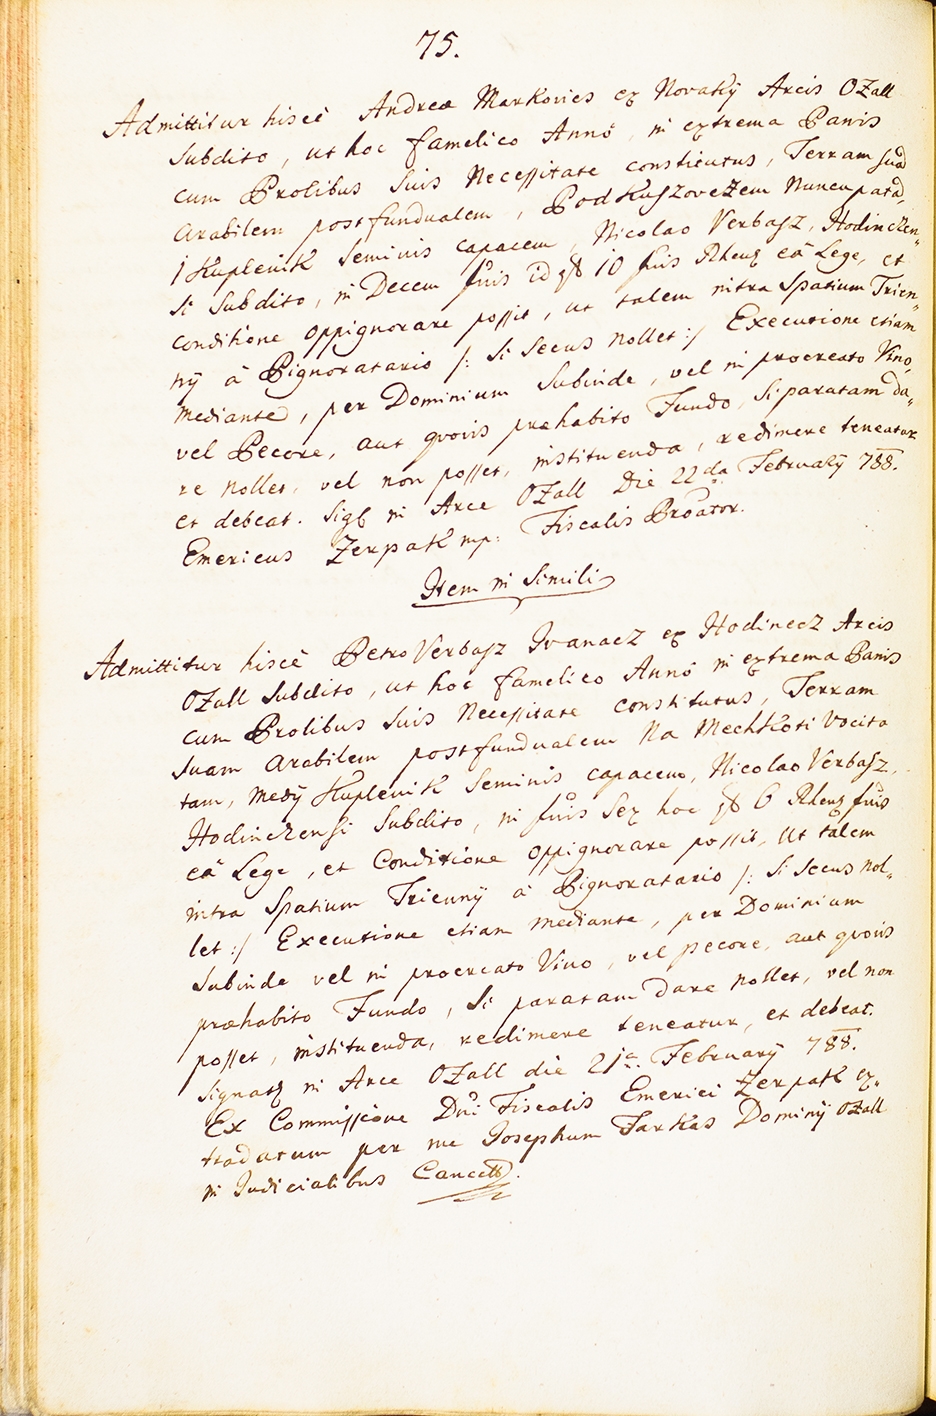 75.
Admittitur hiscè Andreæ Markovics ex Novaky Arcis OZall
Subdito, ut hoc famelico Annô, in extrema Panis
cum Prolibus suis Necessitate constitutus, Terram suã
arabilem postfundualem, PodKuszoveZem Nuncupatã,
1 Kuplenik Seminis capacem, Nicolao Verbasz, Hodinczen„
si Subdito, in Decem fnis id est 10 fnis Rhens eâ Lege, et
conditione oppignorare possit, ut talem intra Spatium Trien„
nÿ â Pignoratario /: si secus nollet :/ Executione etiam
mediante, per Dominium Subinde, vel in procreato Vino,
vel Pecore, aut quovis præhabito Fundo, Si paratam da„
re nollet, vel non posset, instituenda, redimere teneatur
et debeat. Sigt in Arce OZall Die 22da Februarÿ 788.
Emericus Zerpak mp. Fiscalis Procator.
Item in Simili
Admittitur hiscè Petro Verbasz Ivanacz ex Hodinecz Arcis
OZall Subdito, ut hoc famelico Annô in extrema Panis
cum Prolibus suis Necessitate constitutus, Terram
suam arabilem postfundualem Na Mechkoti Vocita
tam, Medÿ Kuplenik Seminis capacem, Nicolao Verbasz,
Hodinczensi Subdito, in fnis Sex hoc est 6 Rhens fnis
eâ Lege, et Conditione oppignorare possit, ut talem
intra Spatium Triennÿ â Pignoratario /: si secus nol„
let :/ Executione etiam mediante, per Dominium
Subinde vel in procreato Vino, vel pecore, aut quovis
præhabito Fundo, Si paratam dare nollet, vel non
posset, instituenda, redimere teneatur, et debeat.
Signat in Arce OZall die 21a Februarÿ 788.
Ex Commissione Dni Fiscalis Emerici Zerpak ex„
tradatum per me Josephum Farkas Dominÿ OZall
in Judicialibus Cancell.